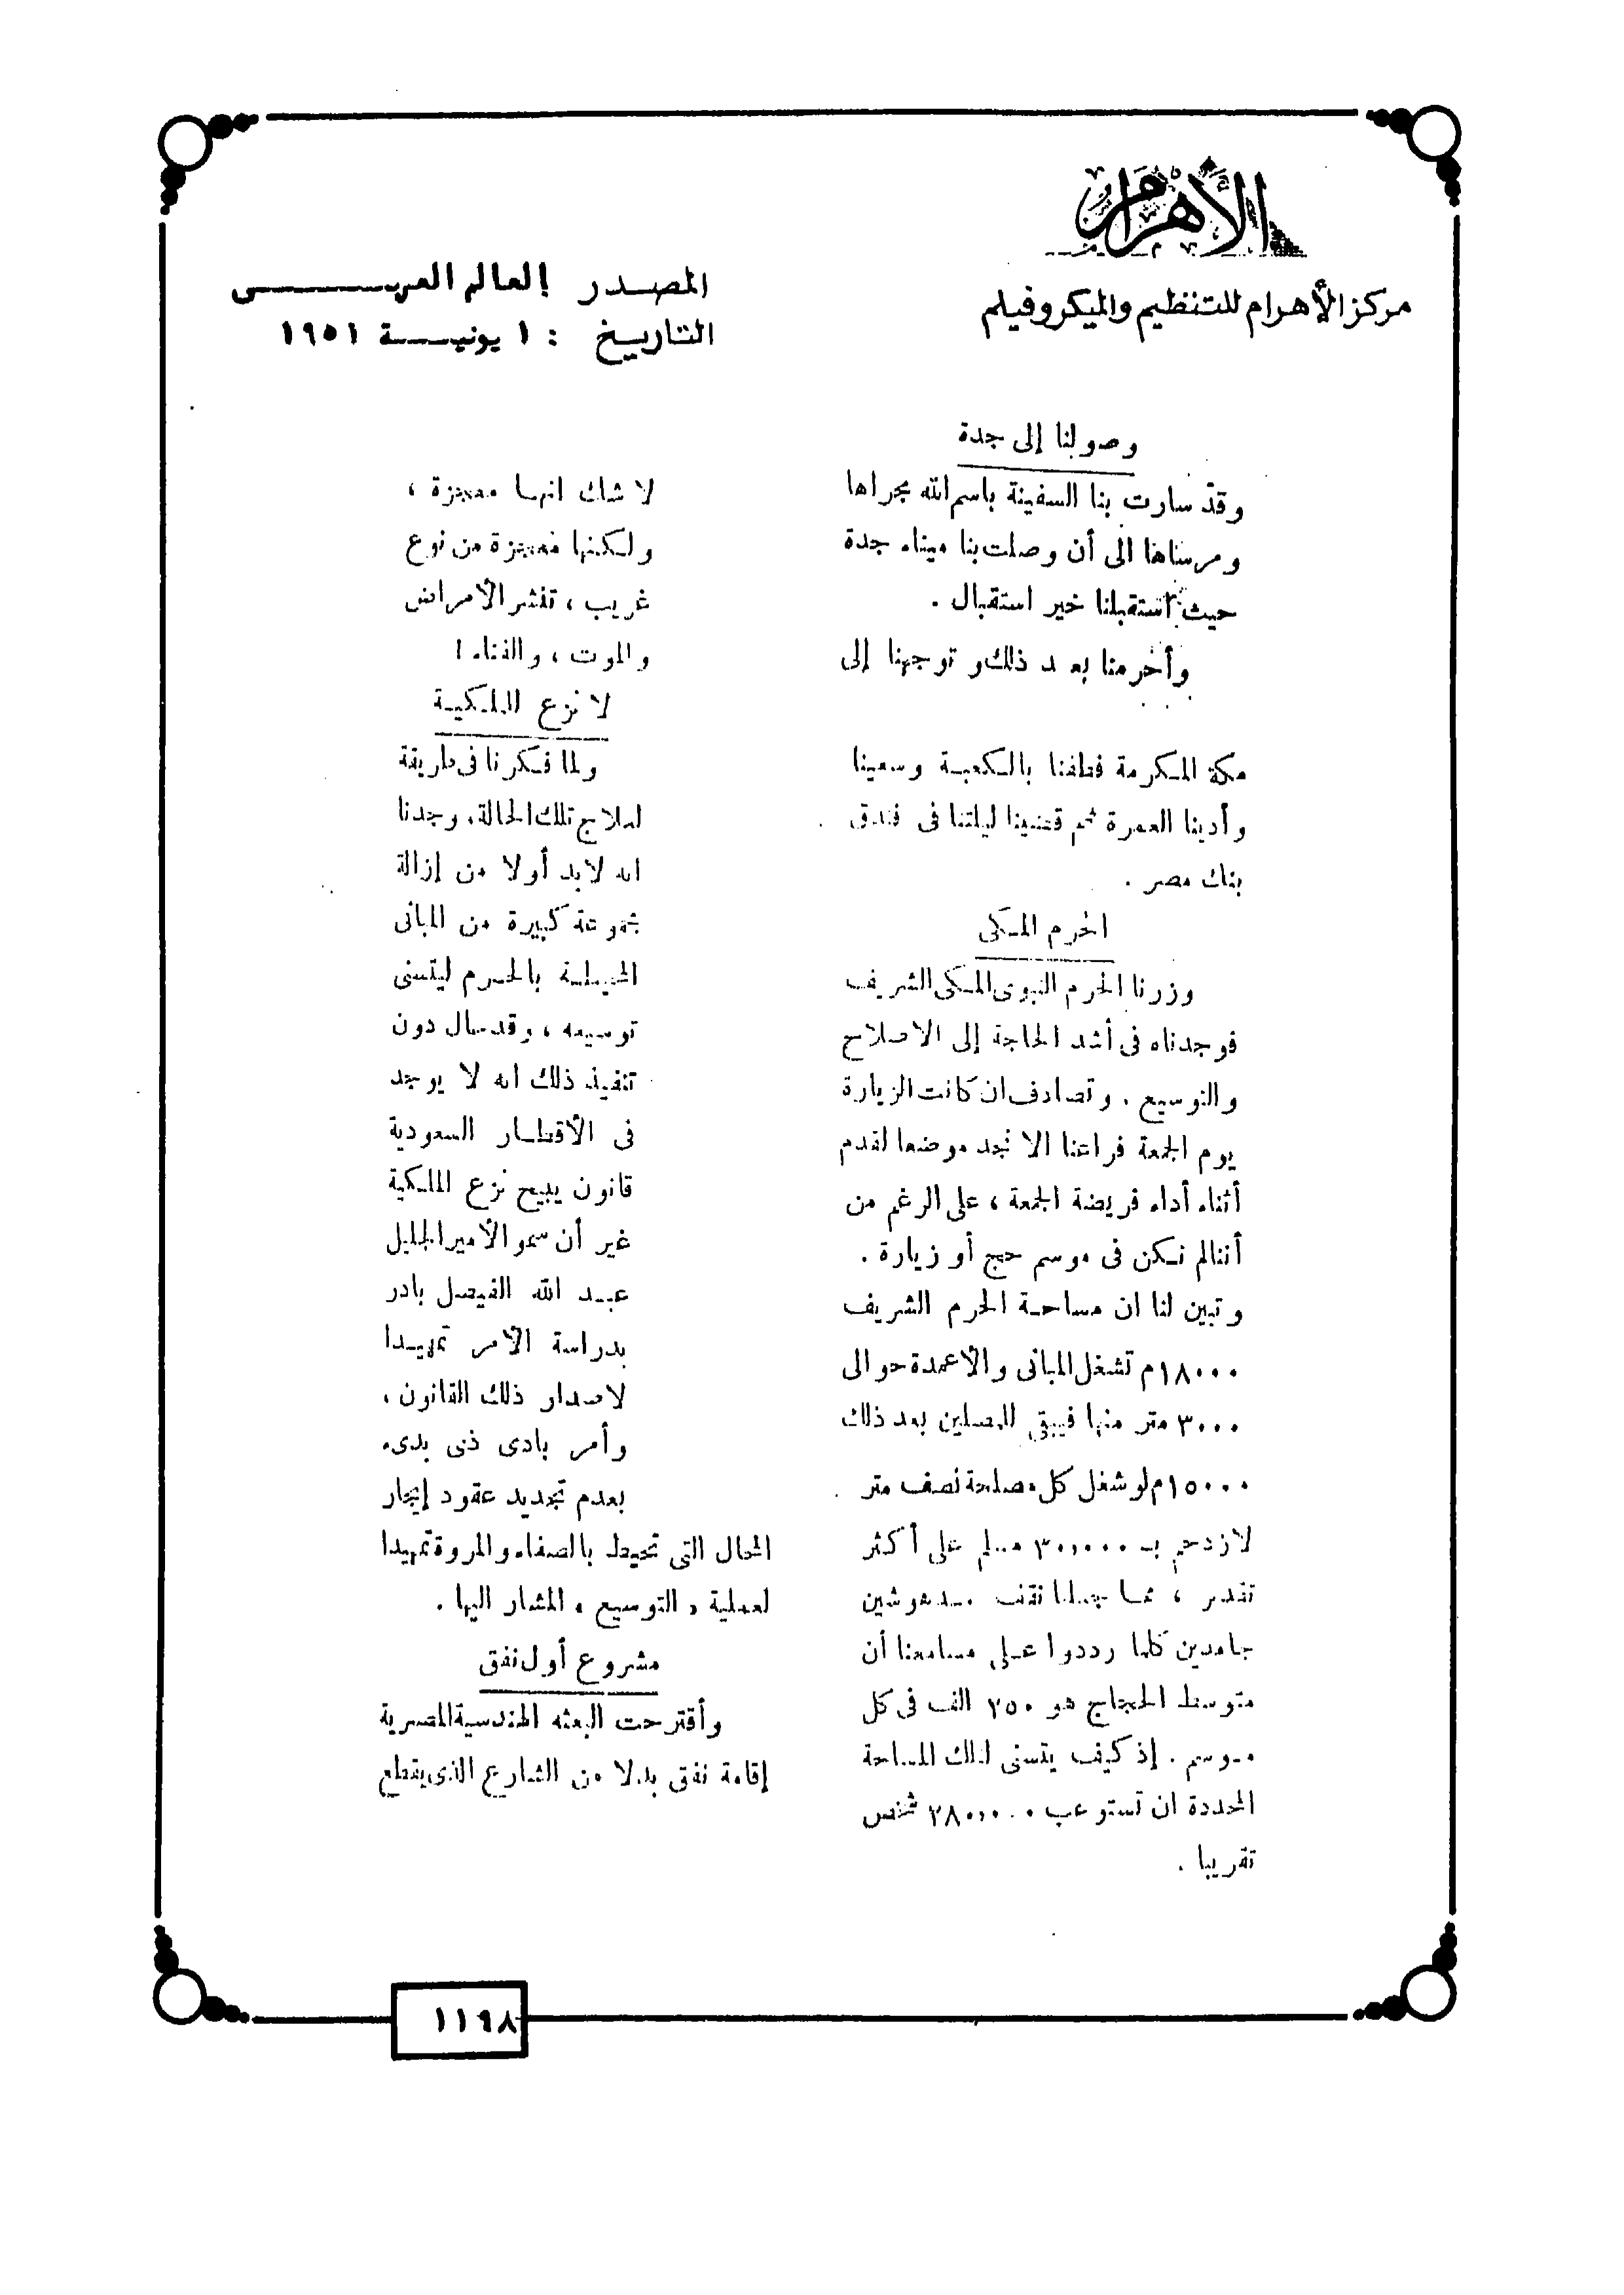 الأهرام
مركز الأهرام للتنظيم والميكروفيلم
المصدر العالم العربى
التاريخ : ١ يونية ١٩٥١
وصولنا إلى جدة
وقد سارت بنا السفينة باسم الله مجراها
ومرساها الى أن وصلت بنا ميناء جدة
حيث استقبلنا خير استقبال .
وأحرمنا بعد ذلك وتوجهنا إلى
مكة المكرمة فطفنا بالكعبة وسعينا
وأدينا العمرة ثم قضينا ليلتنا فى فندق
بنك مصر .
الحرم المكى
وزرنا الحرم النبوى المكى الشريف
فوجدناه فى أشد الحاجة إلى الاصلاح
والتوسيع . وتصادف ان كانت الزيارة
يوم الجمعة فراعنا الا نجد موضعا لقدم
أثناء أداء فريضة الجمعة ، على الرغم من
أننالم نكن فى موسم حج أو زيارة .
وتبين لنا ان مساحة الحرم الشريف
١٨٠٠٠م تشغل المبانى والأعمدة حوالى
٣٠٠٠ متر منها فيبقى للمصلين بعد ذلك
١٥٠٠٠م لو شغل كل مصل حة نصف متر
لازدحم بـ ٣٠,٠٠٠ مسلم على أكثر
تقدير ، مما جعلنا نقف مدهوشين
جامدين كلما رددوا على مسامعنا أن
متوسط الحجاج هو ٢٥٠ الف فى كل
موسم . إذ كيف يتسنى لتلك المساحة
المحددة ان تستوعب ٢٨٠,٠٠٠ شخص
تقريبا .
لا شك انها معجزة ،
ولكنها معجزة من نوع
غريب ، تنشر الأمراض
والموت ، والفناء !
لا نزع للملكية
ولما فكرنا فى طريقة
لعلاج تلك الحالة ، وجدنا
انه لابد أولا من إزالة
مجموعة كبيرة من المبانى
المحيطة بالحرم ليتسنى
توسيعه ، وقد حال دون
تنفيذ ذلك انه لا يوجد
فى الأقطار السعودية
قانون يبيح نزع الملكية
غير أن سمو الأمير الجليل
عبد الله الفيصل بادر
بدراسة الأمر تمهيدا
لاصدار ذلك القانون ،
وأمر بادى ذى بدىء
بعدم تجديد عقود إيجار
المحال التى تحيط بالصفاء والمروة تمهيدا
لعملية « التوسيع » المشار اليها .
مشروع أول نفق
وأقترحت البعثه الهندسية المصرية
إقامة نفق بدلا من الشارع الذى يقطع
١١٩٨